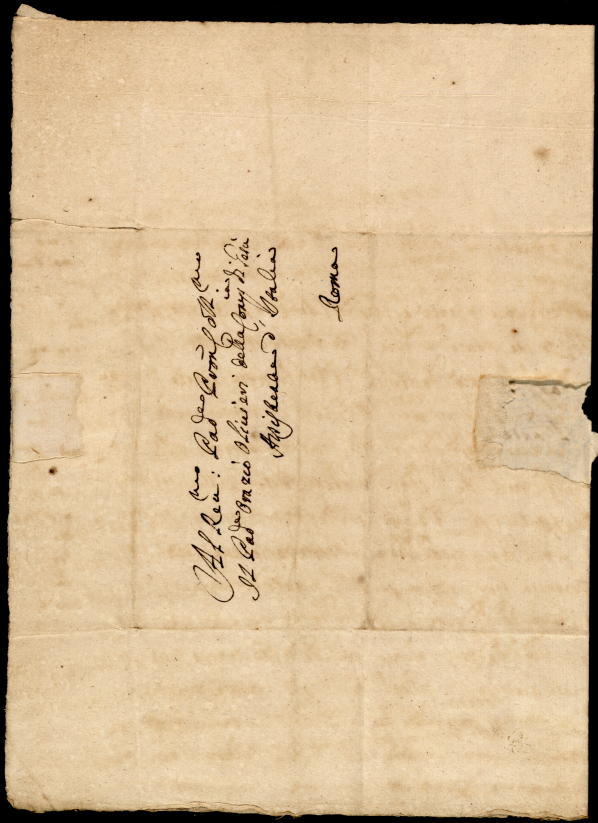 Al Reu:mo Pad.re Pron Col:mo
Il Pad.re Orazio Oliuieri della Comp.ia di Giesù
Assistente d'Italia
Roma